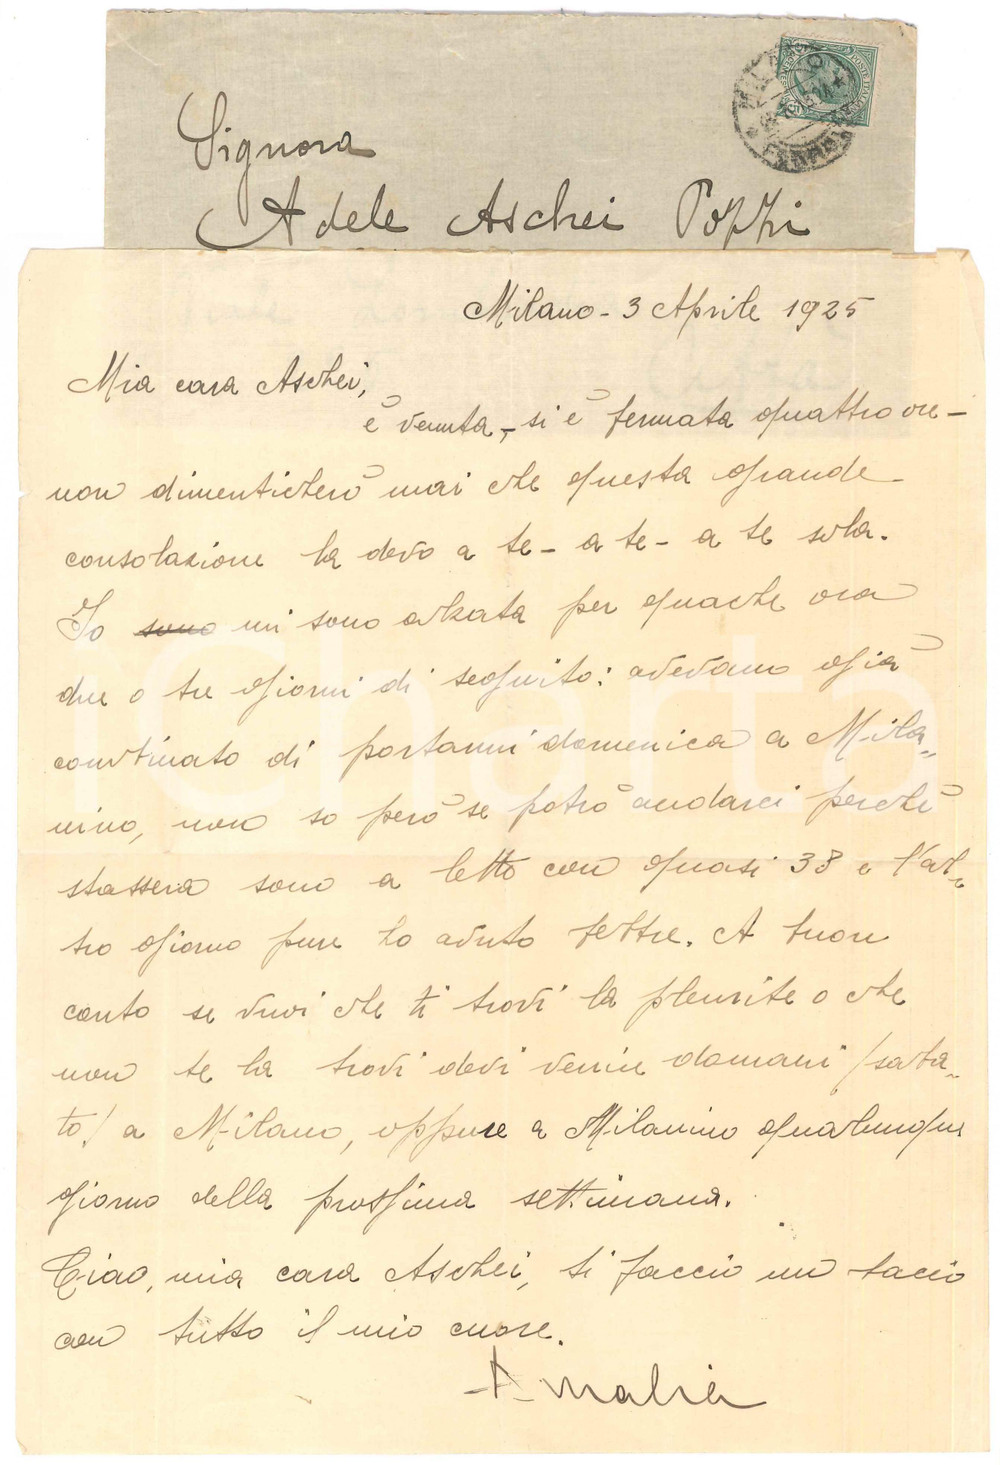 Signora
Adele Aschei Pozzi
Milano - 3 Aprile 1925
Mia cara Aschei,
è venuta, - si è fermata quattro ore -
non dimenticherò mai che questa grande
consolazione la devo a te - a te - a te sola.
Io sono mi sono alzata per qualche ora
due o tre giorni di seguito: avevamo già
combinato di portarmi domenica a Mila„
nino, non so però se potrò andarci perchè
stassera sono a letto con quasi 38 e l'al„
tro giorno pure ho avuto febbre. A buon
conto se vuoi che ti trovi la pleurite o che
non te la trovi devi venire domani /saba„
to/ a Milano, oppure a Milanino qualunque
giorno della prossima settimana.
Ciao, mia cara Aschei, ti faccio un bacio
con tutto il mio cuore.
Amalia